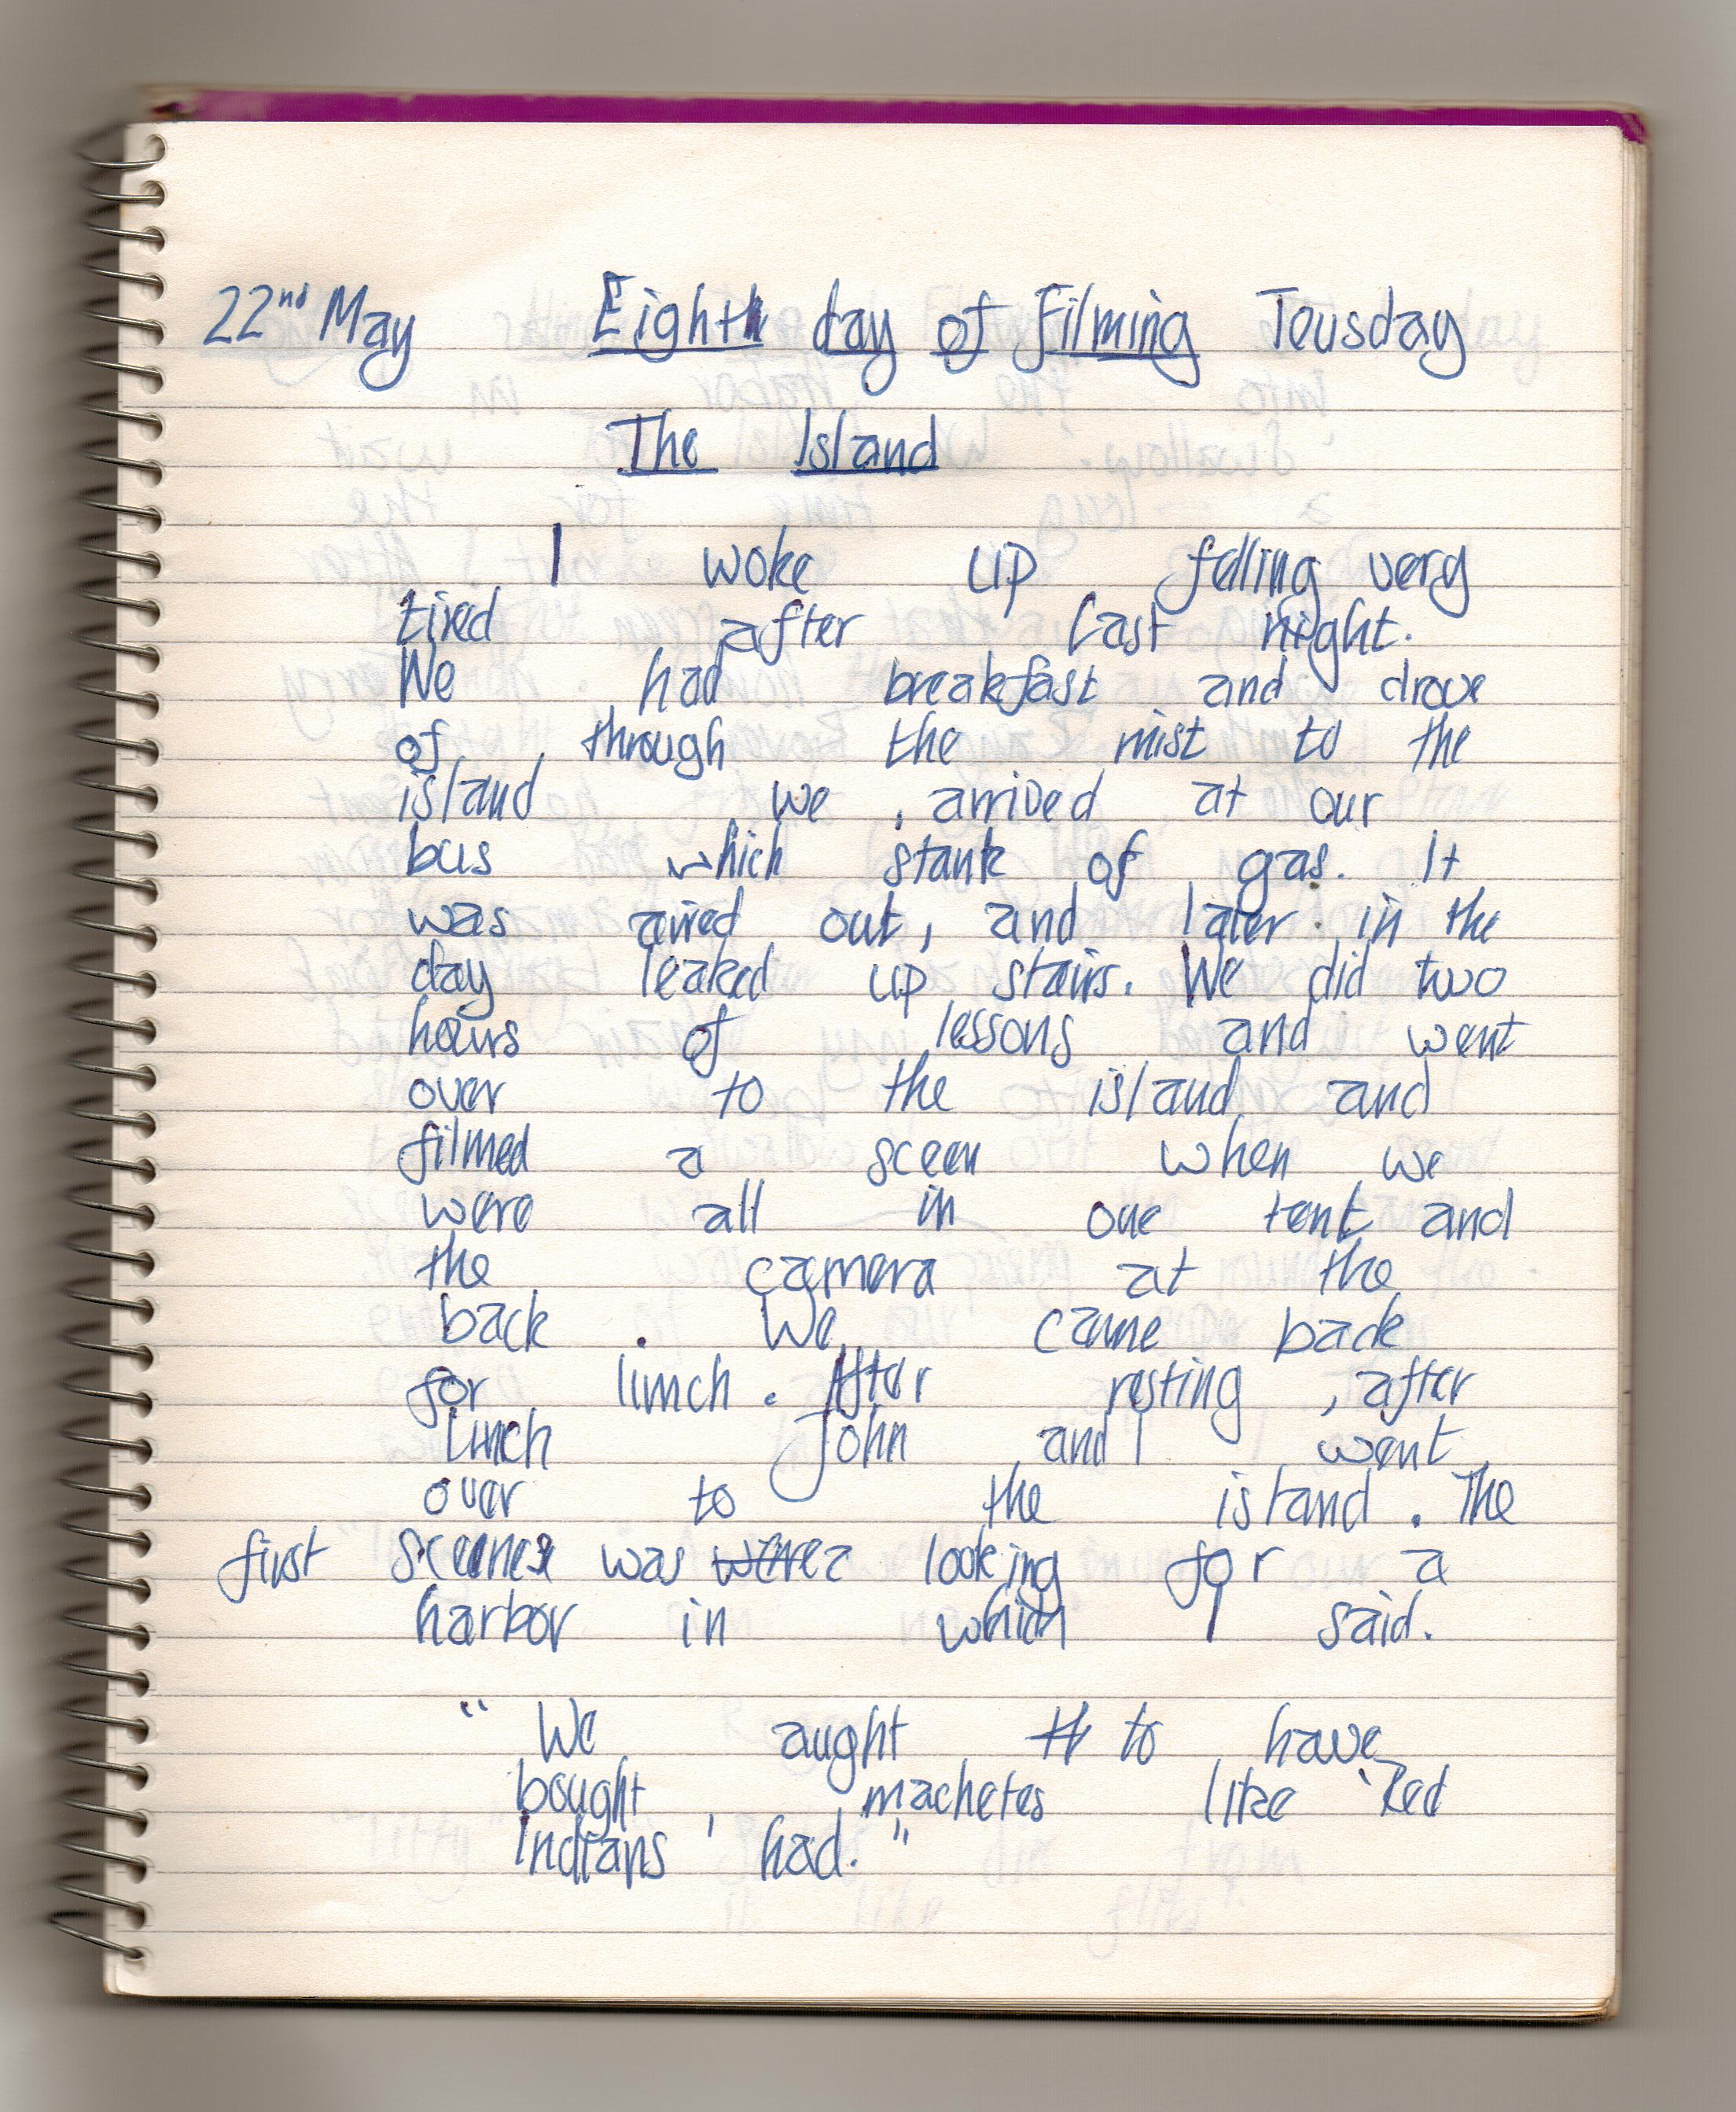 22nd May Eighth day of Filming Teusday
The Island
I woke up felling very
tired after last night.
We had breakfast and drove
of, through the mist to the
island we, arrived at our
bus which stank of gas. It
was aired out, and later in the
day leaked up stairs. We did two
hours of lessons and went
over to the island and
filmed a sceen when we
were all in one tent and
the camera at the
back. We came back
for lunch. After resting, after
Lunch John and I went
over to the island. The
first was looking for a
harbor in which I said.
"We aught to have
bought machetes like 'Red
Indians' had."